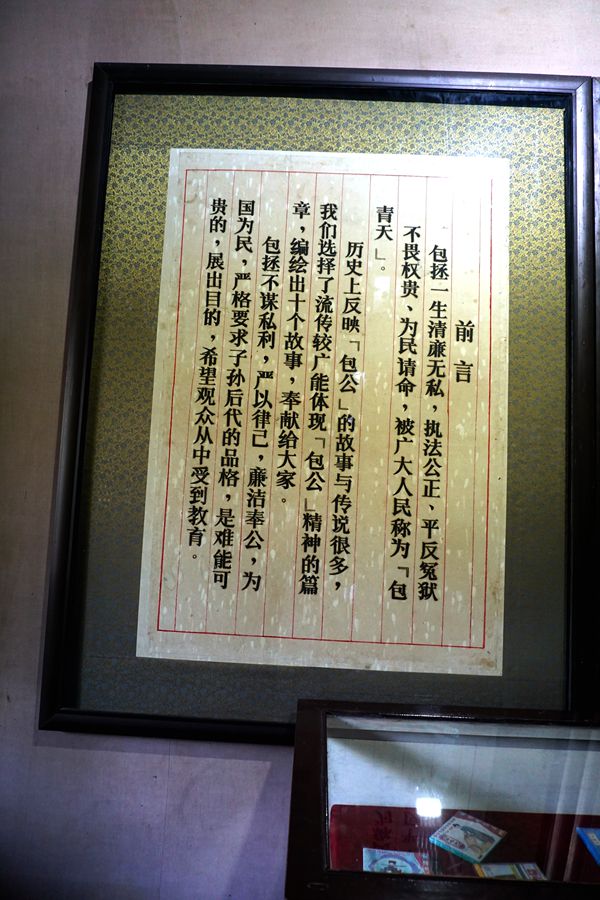 前言
包拯一生清廉无私，执法公正、平反冤狱
不畏权贵、为民请命，被广大人民称为「包
青天」。
历史上反映「包公」的故事与传说很多，
我们选择了流传较广能体现「包公」精神的篇
章，编绘出十个故事，奉献给大家。
包拯不谋私利，严以律己，廉洁奉公，为
国为民，严格要求子孙后代的品格，是难能可
贵的，展出目的，希望观众从中受到教育。